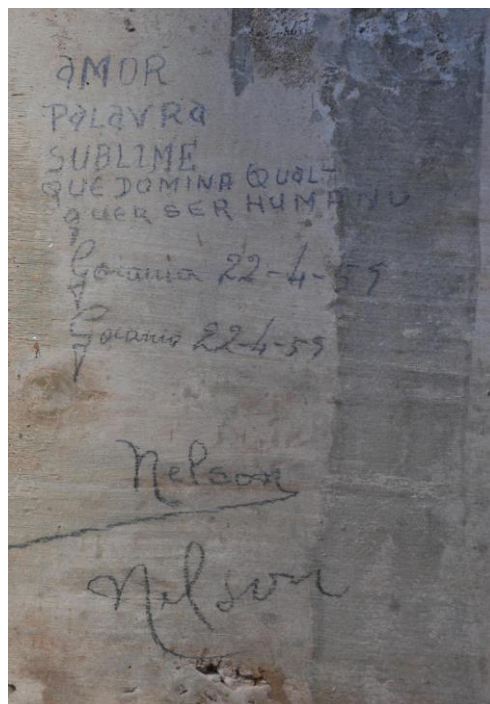 aMOR
PaLaVRa
SUBLIME
QUE DOMINA QUAL-
QUER SER HUMANU
Goiania 22-4-59
Goiania 22-4-59
Nelson
Nelson